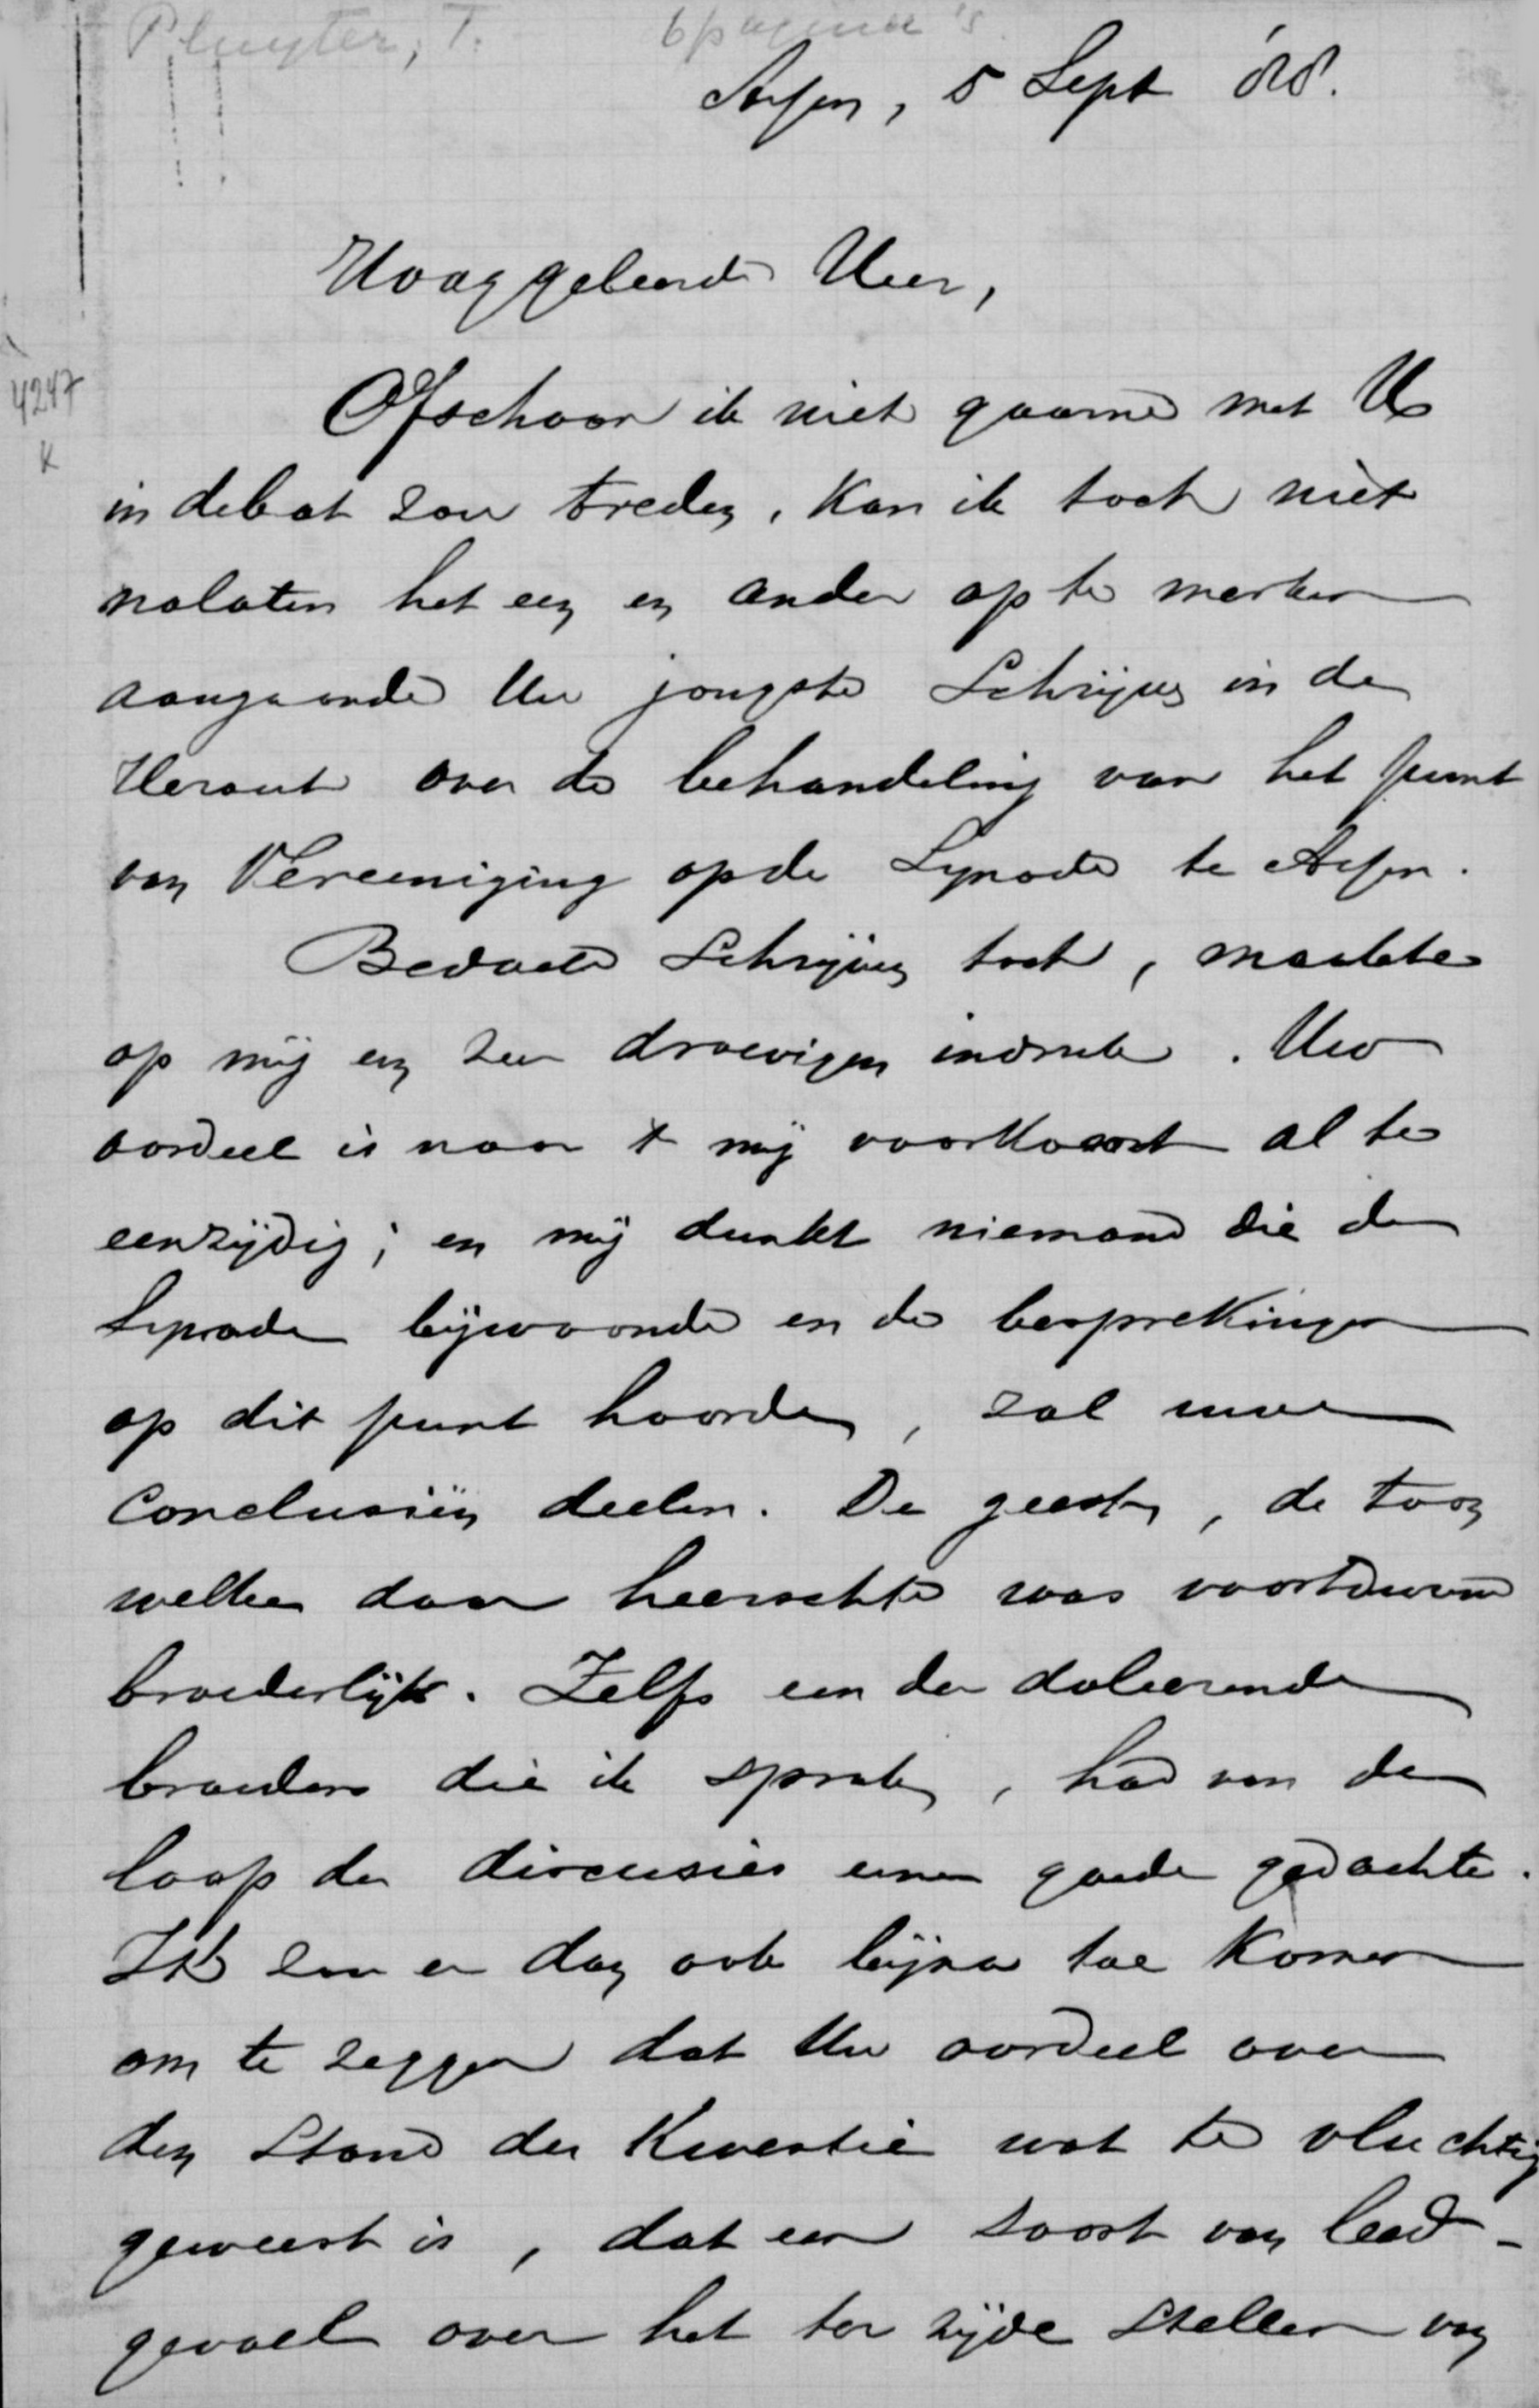 Pluyter, T. 6 pagina's
Assen, 5 Sept '88.
Hooggeleerde Heer,
4247
K
Ofschoon ik niet gaarne met U
in debat zou treden, kan ik toch niet
nalaten het een en ander op te merken
aangaande Uw jongste Schrijven in de
Heraut over de behandeling van het punt
van Vereeniging op de Synode te Assen.
Bedoeld Schrijven toch, maakte
op mij een zeer droevigen indruk. Uw
oordeel is naar 't mij voorkomt al te
eenzijdig; en mij dunkt niemand die de
Synode bijwoonde en de besprekingen
op dit punt hoorde, zal uwe
Conclusiën deelen. De geest, de toon
welke daar heerschte was voortdurend
broederlijk. Zelfs een der doleerende
broeders die ik sprak, had van den
loop der discussies eene goede gedachte.
Ik zou er dan ook bijna toe komen
om te zeggen dat Uw oordeel over
den Stand der Kwestie wat te vluchtig
geweest is, dat een soort van leed-
gevoel over het ter zijde stellen van